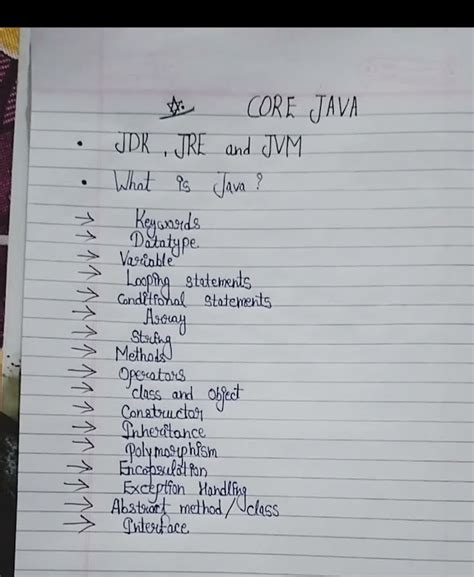 CORE JAVA
• JDK, JRE and JVM
• What is Java?
→ Keywords
→ Datatype
→ Variable
→ Looping statements
→ Conditional statements
→ Array
→ String
→ Methods
→ Operators
→ class and object
→ Constructor
→ Inheritance
→ Polymorphism
→ Encapsulation
→ Exception Handling
→ Abstract method / class
→ Interface